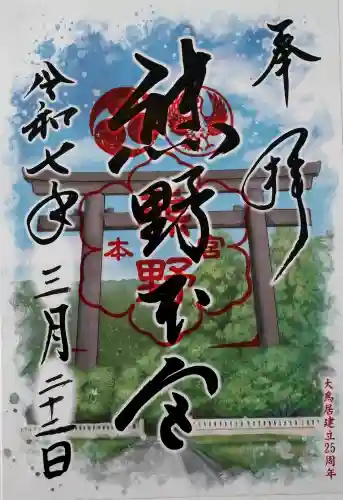 奉拝
熊野本宮
本宮
熊野
令和七年三月二十二日
大鳥居建立25周年